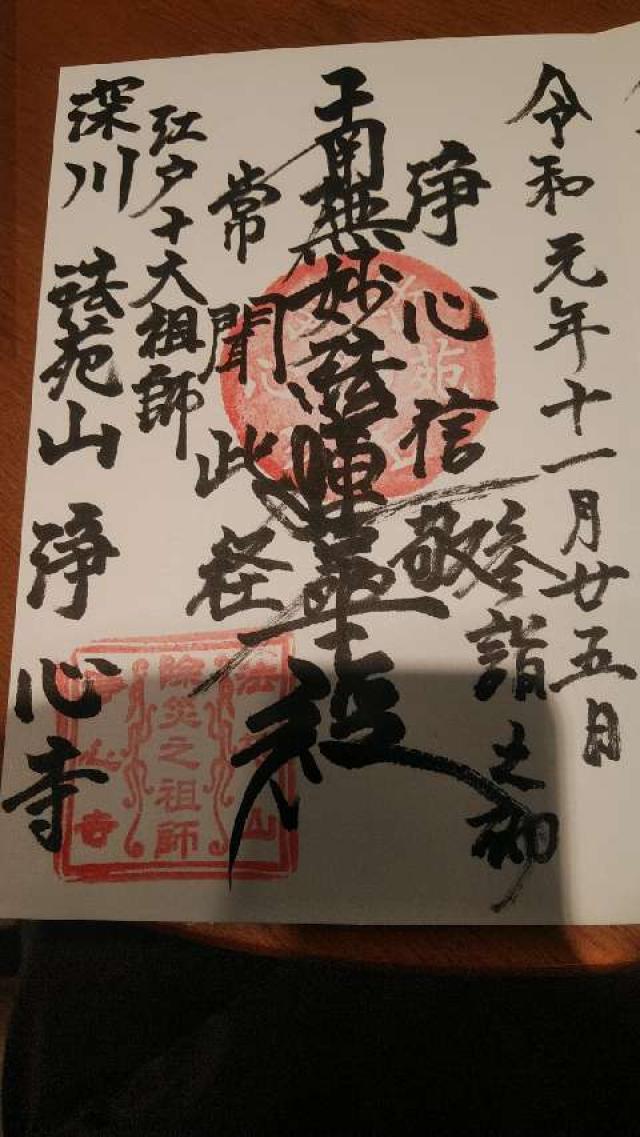 令和元年十一月廿五日
参詣之砌
浄心信敬
南無妙法蓮華経
常聞此経
江戸十大祖師
深川 法苑山 浄心寺
除災之祖師